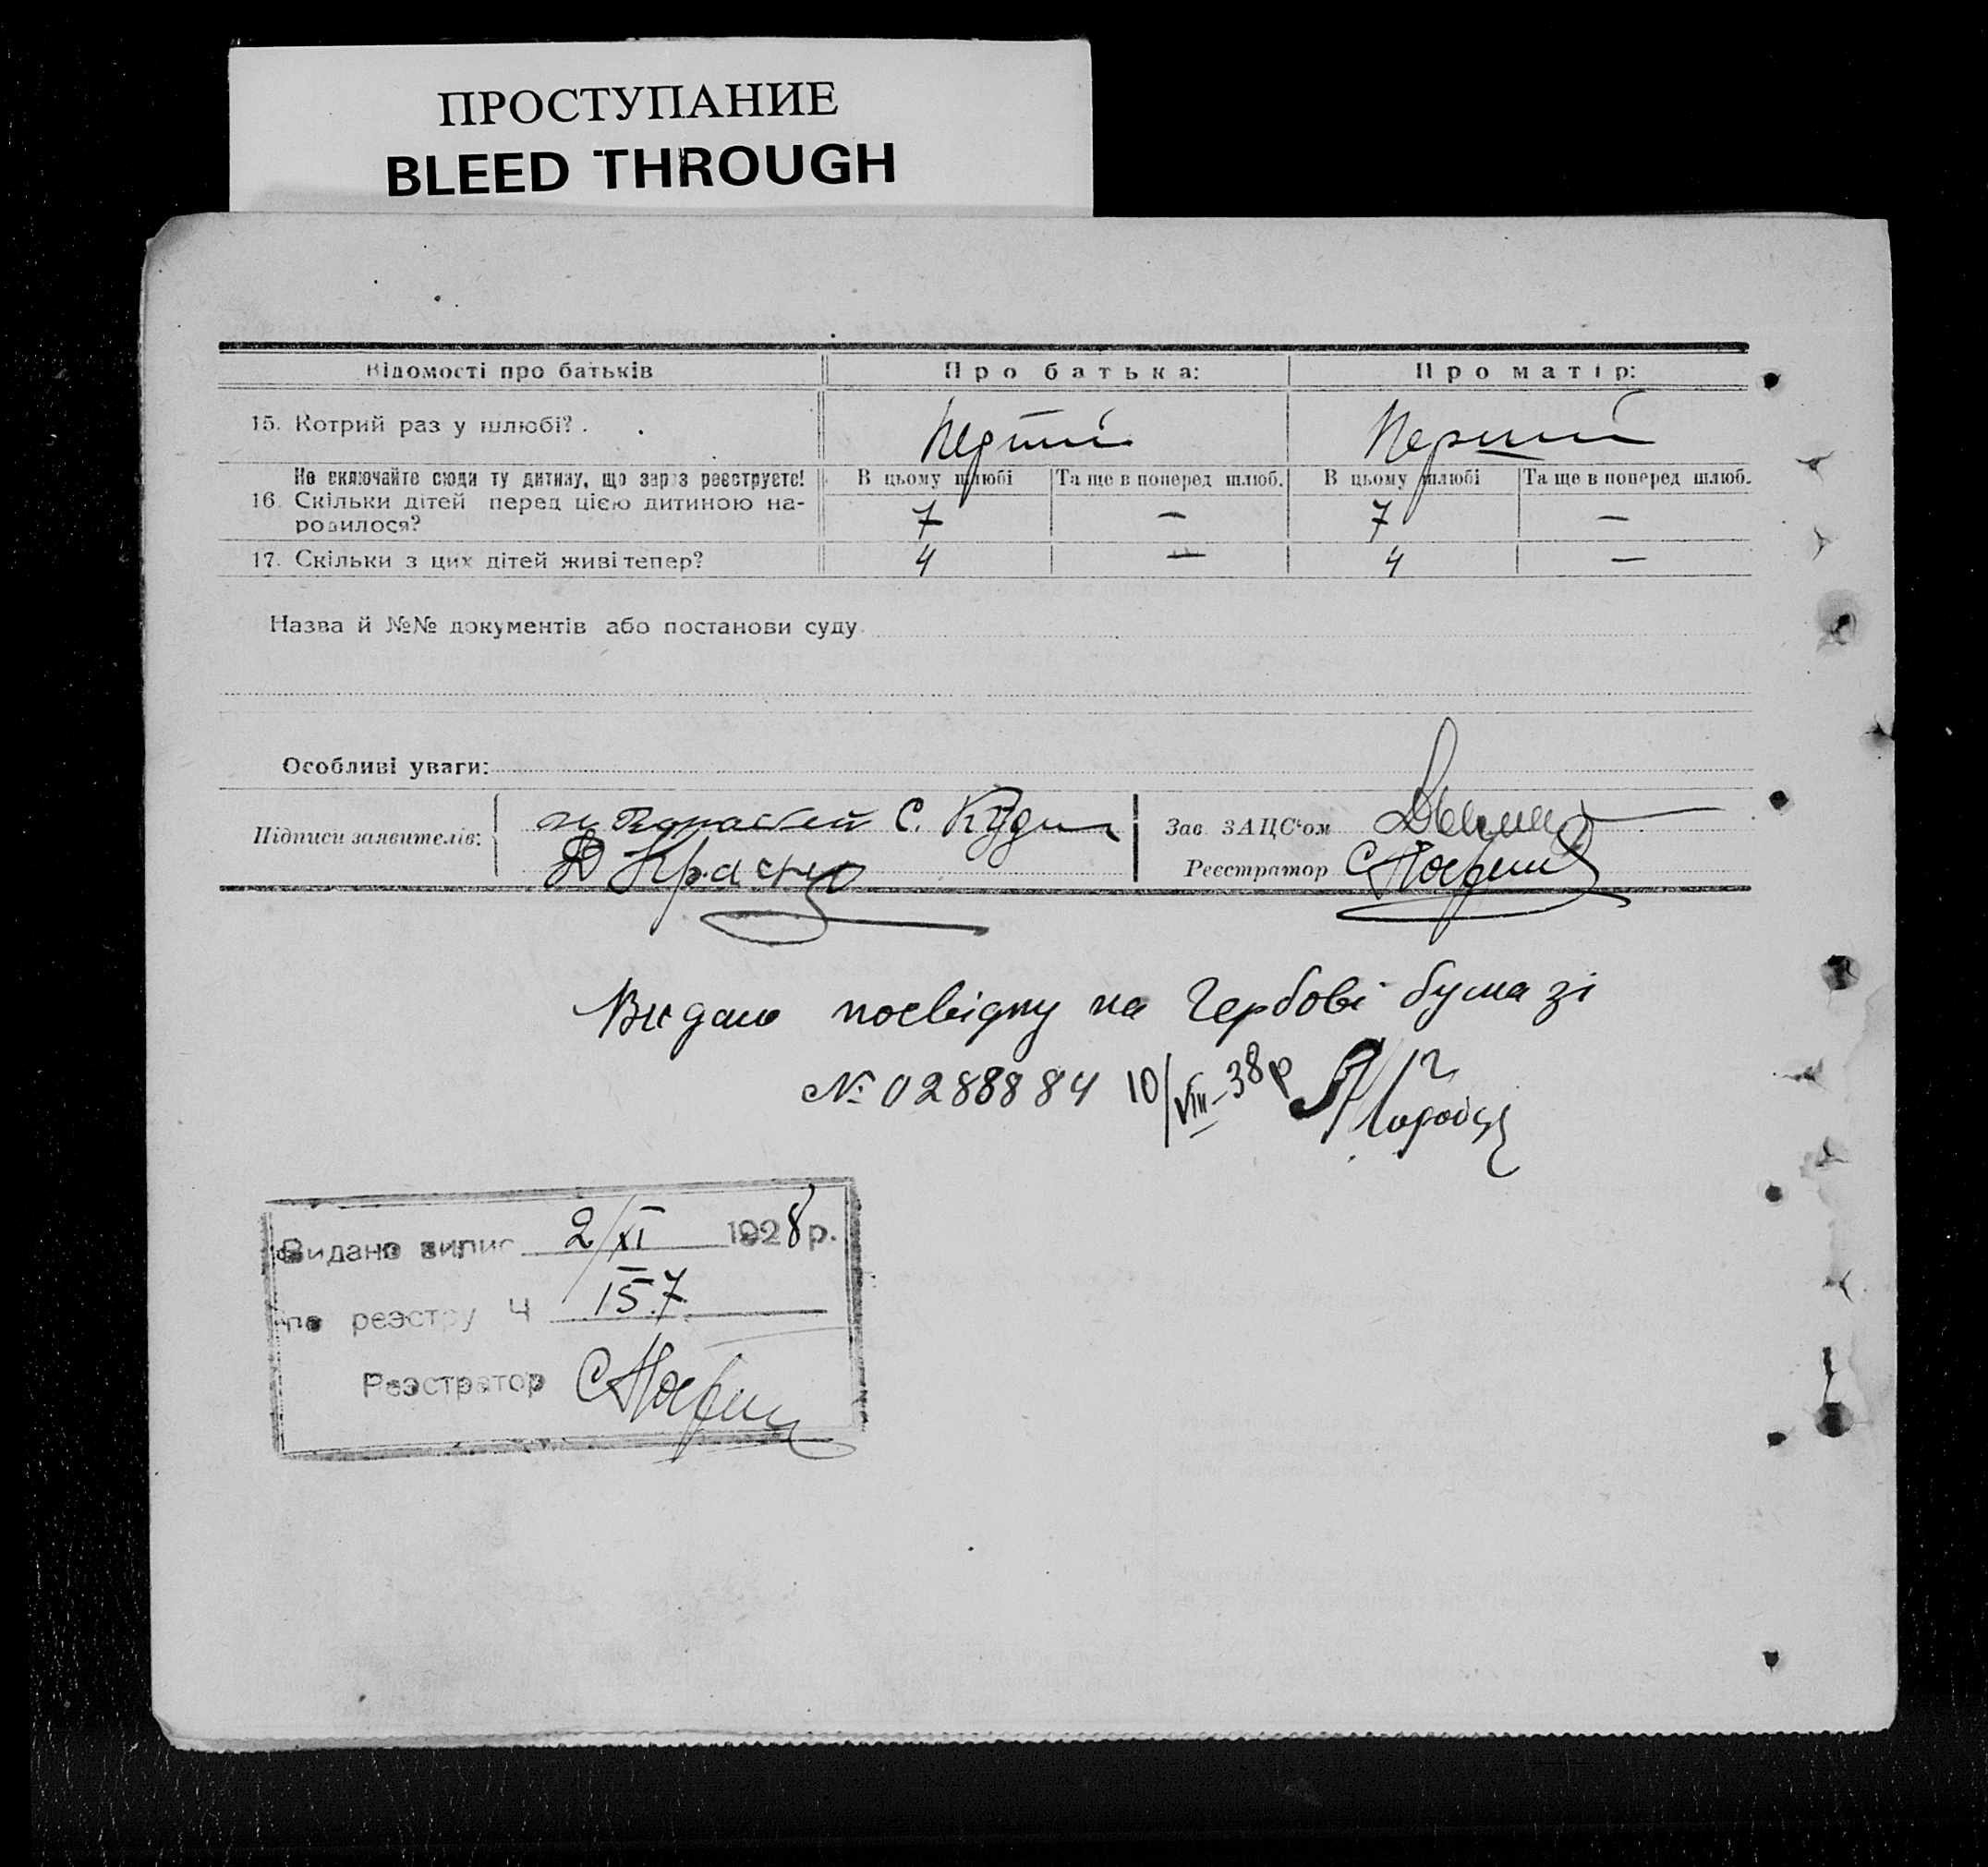 ПРОСТУПАНИЕ
BLEED THROUGH
Відомості про батьків Про батька: Про матір:
15. Котрий раз у шлюбі? . . Перший Перший
Не включайте сюди ту дитину, що зараз реєструєте! В цьому шлюбі Та ще в поперед шлюб. В цьому шлюбі Та ще в поперед шлюб.
16. Скільки дітей перед цією дитиною на-
родилося? 7 — 7 —
17. Скільки з цих дітей живі тепер? 4 — 4 —
Назва й №№ документів або постанови суду
Особливі уваги:
Підписи заявителів: С. Кудин Зав ЗАЦС'ом
Реєстратор
Видано посвідку на Гербові бумазі
№ 0288884 10/VIII–38р
Видано випис 2/XI 1928р.
по реэстру Ч 157
Реэстратор